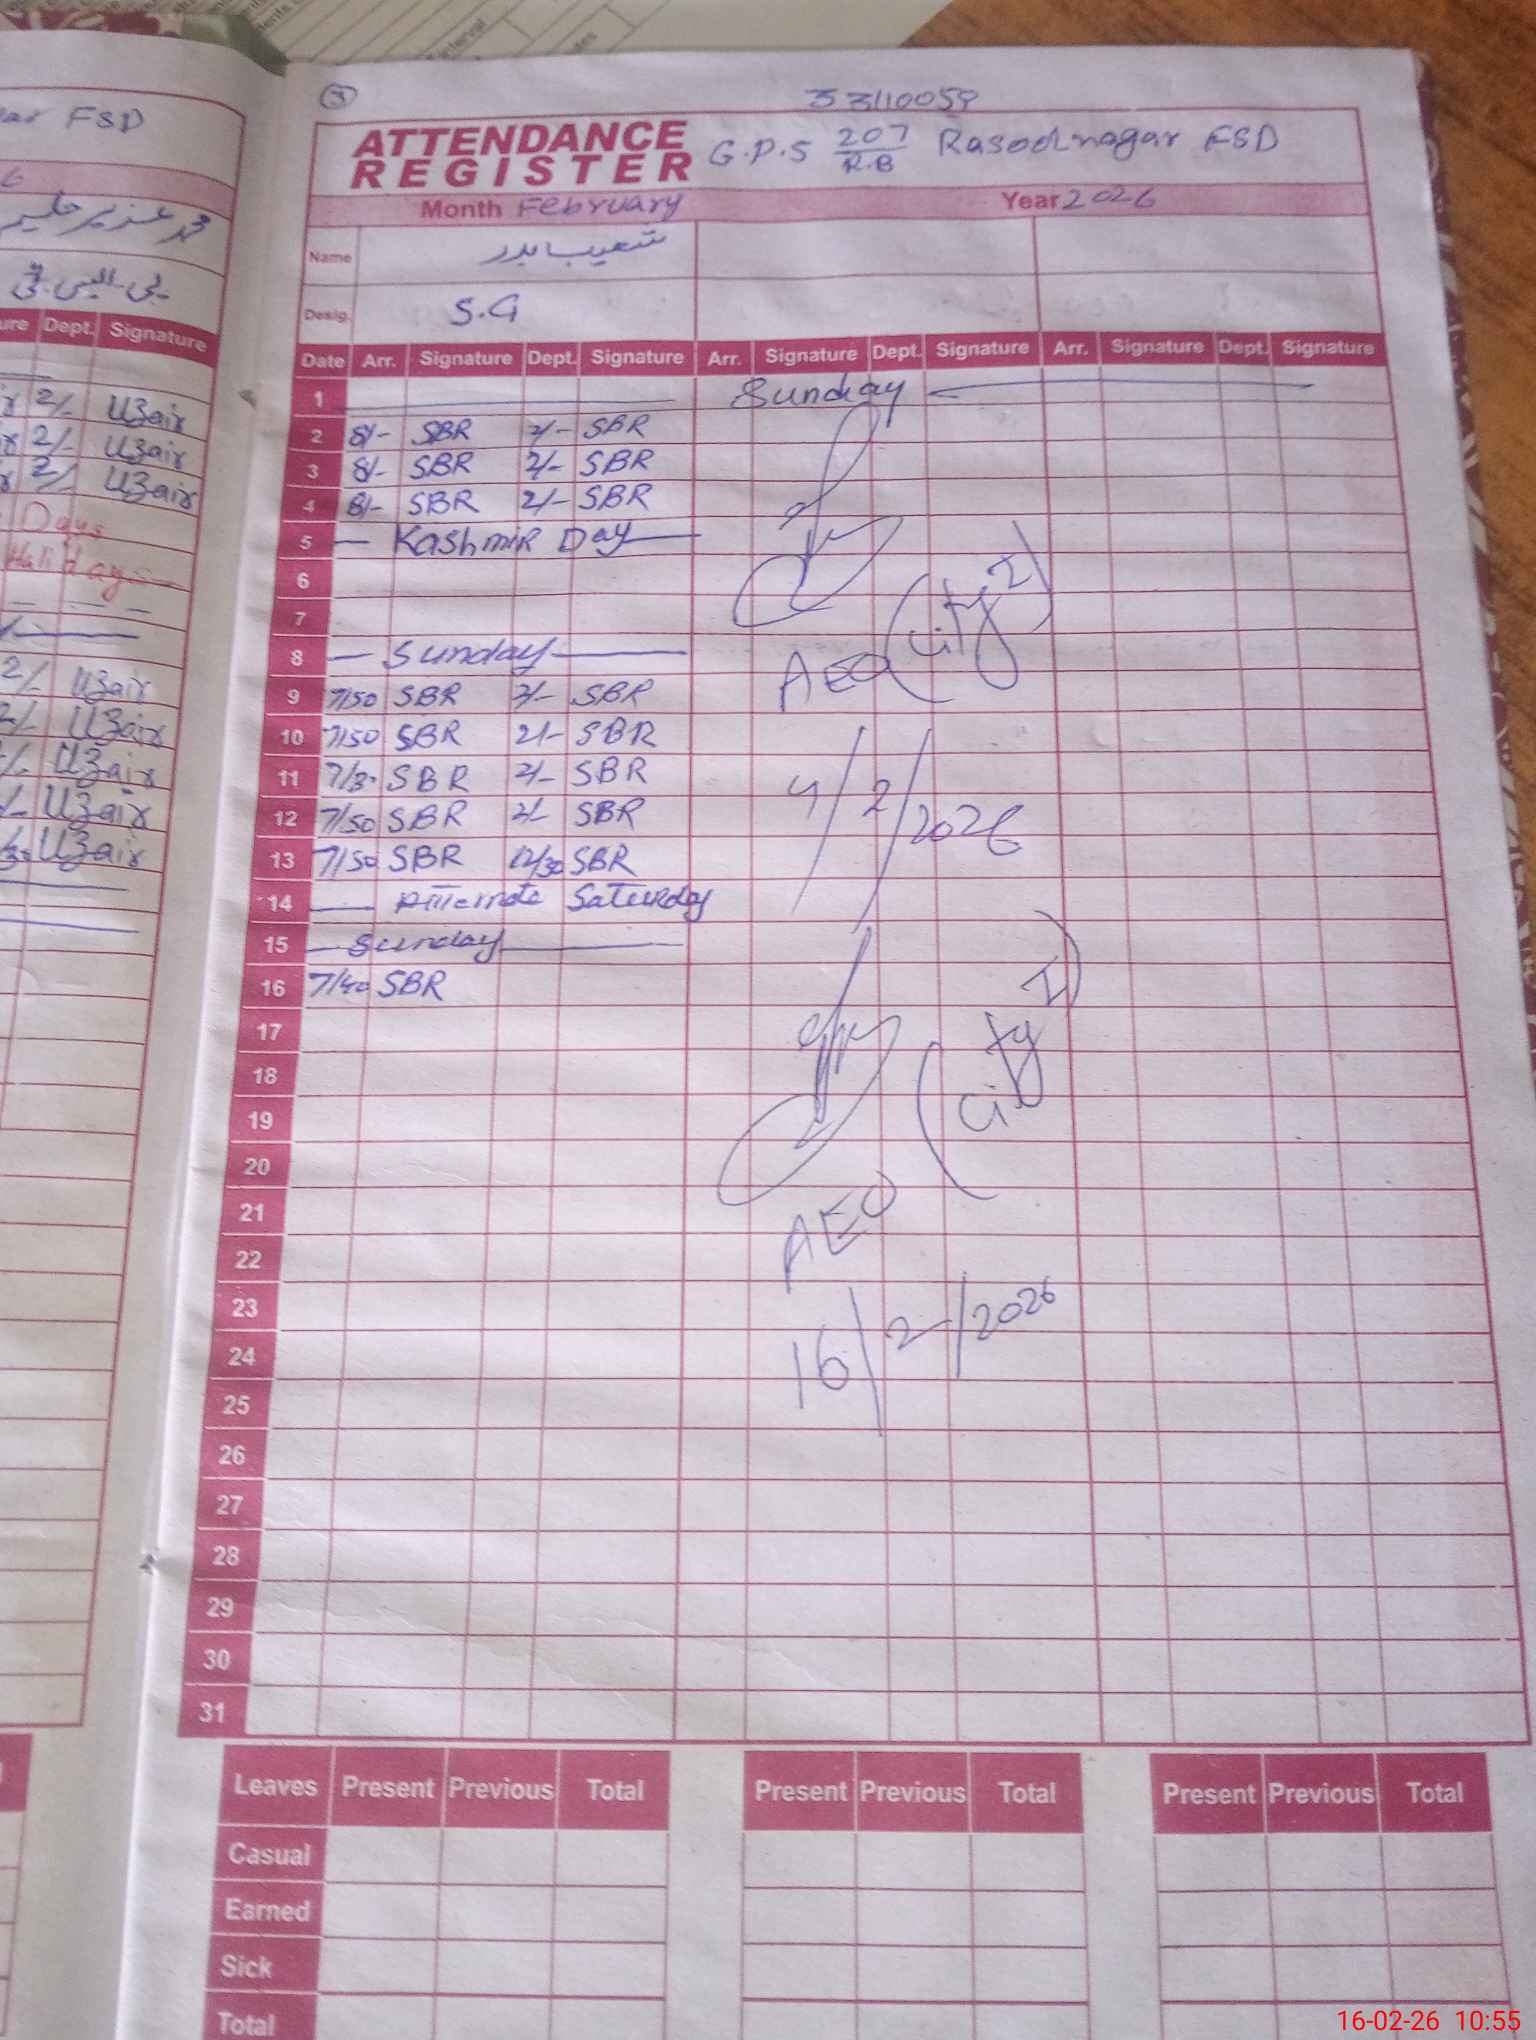 ar FSD
6
محمد عزیر حلیم
پی۔ایس۔ٹی
ure Dept. Signature
2/- Uzair
2/- Uzair
2/- Uzair
Days
Holidays
2/- Uzair
2/- Uzair
/- Uzair
/- Uzair
Uzair
3
33110059
ATTENDANCE REGISTER
G.P.S 207/R.B Rasoolnagar FSD
Month February Year 2026
Name شعیب بدر
Desig. S.G
Date Arr. Signature Dept. Signature Arr. Signature Dept. Signature Arr. Signature Dept. Signature
1 Sunday
2 8/- SBR 2/- SBR
3 8/- SBR 2/- SBR
4 8/- SBR 2/- SBR
5 Kashmir Day
6
7
8 Sunday
9 7/50 SBR 2/- SBR
10 7/50 SBR 2/- SBR
11 7/3- SBR 2/- SBR
12 7/50 SBR 2/- SBR
13 7/50 SBR 12/30 SBR
14 Alternate Saturday
15 Sunday
16 7/40 SBR
17
18
19
20
21
22
23
24
25
26
27
28
29
30
31
AEO (City I)
4/2/2026
AEO (City I)
16/2/2026
Leaves Present Previous Total Present Previous Total Present Previous Total
Casual
Earned
Sick
Total
16-02-26 10:55